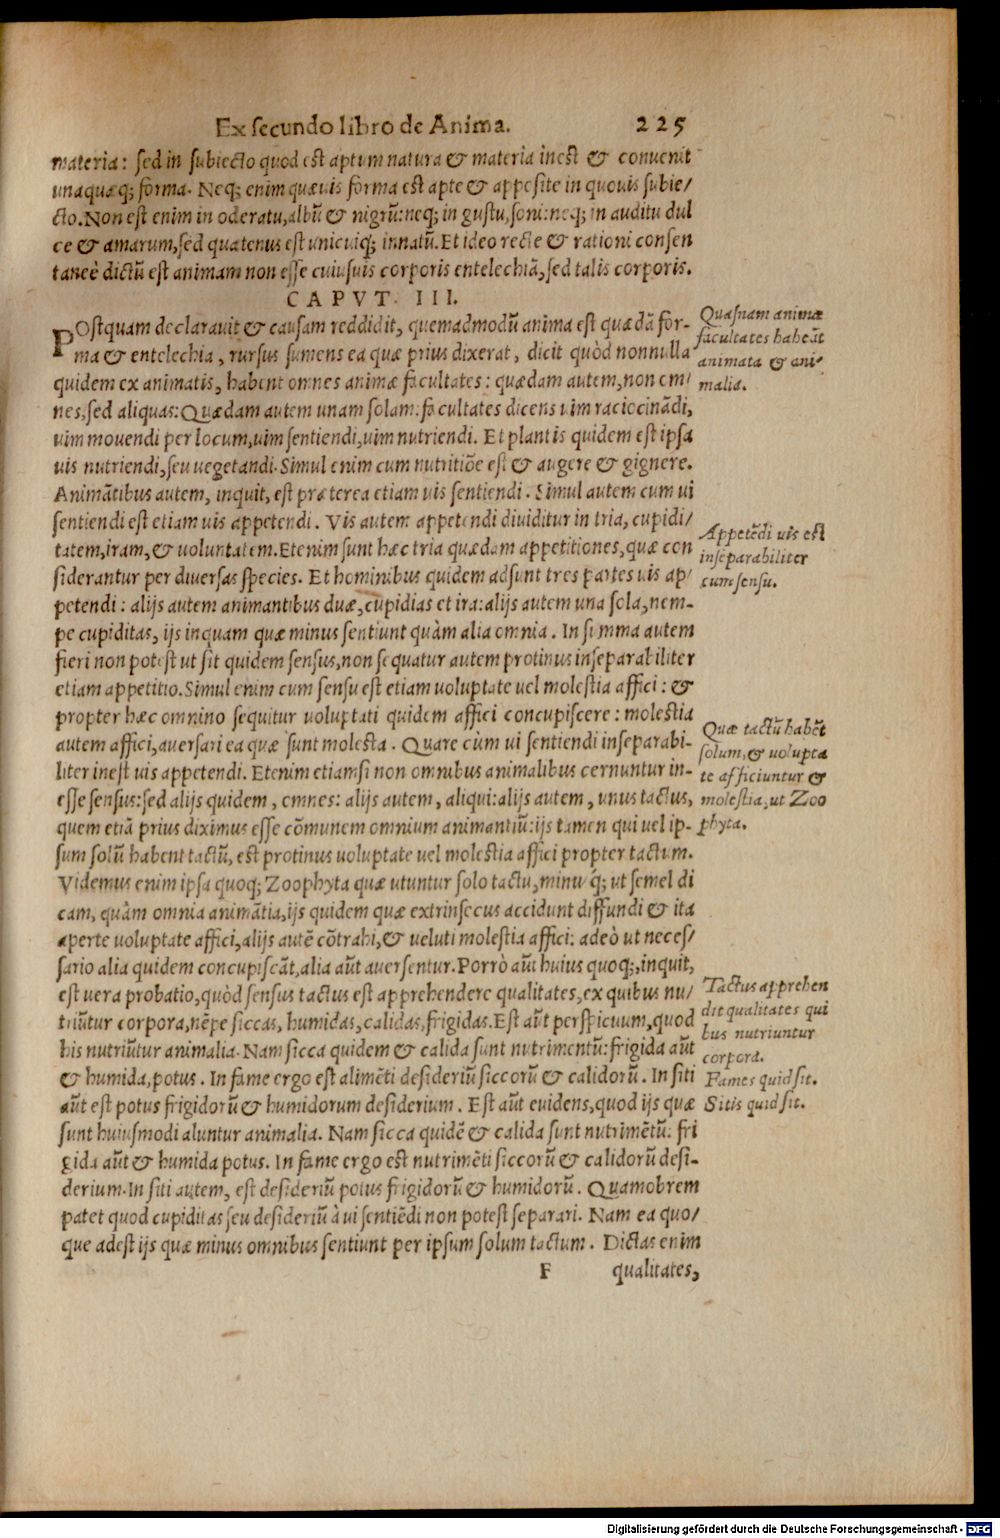 Ex secundo libro de Anima. 225
materia: sed in subiecto quod est aptum natura & materia inest & conuenit
unaquæq; forma. Neq; enim quæuis forma est apte & apposite in quouis subie/
cto. Non est enim in odoratu, albū & nigrū: neq; in gustu, soni: neq; in auditu dul
ce & amarum, sed quatenus est unicuiq; innatū. Et ideo recte & rationi consen
taneè dictū est animam non esse cuiusuis corporis entelechiā, sed talis corporis.
CAPVT. III.
POstquam declarauit & causam reddidit, quemadmodū anima est quædā for-
ma & entelechia, rursus sumens ea quæ prius dixerat, dicit quòd nonnulla
quidem ex animatis, habent omnes animæ facultates: quædam autem, non om/
nes, sed aliquas: Quædam autem unam solam: facultates dicens uim raciocinādi,
uim mouendi per locum, uim sentiendi, uim nutriendi. Et plantis quidem est ipsa
uis nutriendi, seu uegetandi. Simul enim cum nutritiōe est & augere & gignere.
Animātibus autem, inquit, est præterea etiam uis sentiendi. Simul autem cum ui
sentiendi est etiam uis appetendi. Vis autem appetendi diuiditur in tria, cupidi/
tatem, iram, & uoluntatem. Etenim sunt hæc tria quædam appetitiones, quæ con
siderantur per diuersas species. Et hominibus quidem adsunt tres partes uis ap/
petendi: alijs autem animantibus duæ, cupidias et ira: alijs autem una sola, nem-
pe cupiditas, ijs inquam quæ minus sentiunt quàm alia omnia. In summa autem
fieri non potest ut sit quidem sensus, non sequatur autem protinus inseparabiliter
etiam appetitio. Simul enim cum sensu est etiam uoluptate uel molestia affici: &
propter hæc omnino sequitur uoluptati quidem affici concupiscere: molestia
autem affici, auersari ea quæ sunt molesta. Quare cùm ui sentiendi inseparabi-
liter inest uis appetendi. Etenim etiamsi non omnibus animalibus cernuntur in-
esse sensus: sed alijs quidem, omnes: alijs autem, aliqui: alijs autem, unus tactus,
quem etiā prius diximus esse cōmunem omnium animantiū: ijs tamen qui uel ip-
sum solū habent tactū, est protinus uoluptate uel molestia affici propter tactum.
Videmus enim ipsa quoq; Zoophyta quæ utuntur solo tactu, minusq́; ut semel di
cam, quàm omnia animātia, ijs quidem quæ extrinsecus accidunt diffundi & ita
aperte uoluptate affici, alijs autē cōtrahi, & ueluti molestia affici: adeò ut neces/
sario alia quidem concupiscāt, alia aūt auersentur. Porrò aūt huius quoq;, inquit,
est uera probatio, quòd sensus tactus est apprehendere qualitates, ex quibus nu/
triūtur corpora, nēpe siccas, humidas, calidas, frigidas. Est aūt perspicuum, quod
his nutriūtur animalia. Nam sicca quidem & calida sunt nutrimentū: frigida aūt
& humida, potus. In fame ergo est alimēti desideriū siccorū & calidorū. In siti
aūt est potus frigidorū & humidorum desiderium. Est aūt euidens, quod ijs quæ
sunt huiusmodi aluntur animalia. Nam sicca quidē & calida sunt nutrimētū: fri
gida aūt & humida potus. In fame ergo est nutrimēti siccorū & calidorū desi-
derium. In siti autem, est desideriū potus frigidorū & humidorū. Quamobrem
patet quod cupiditas seu desideriū à ui sentiēdi non potest separari. Nam ea quo/
que adest ijs quæ minus omnibus sentiunt per ipsum solum tactum. Dictas enim
F qualitates,
Quasnam animæ
facultates habeāt
animata & ani-
malia.
Appetēdi uis est
inseparabiliter
cum sensu.
Quæ tactū habēt
solum, & uolupta
te afficiuntur &
molestia, ut Zoo
phyta.
Tactus apprehen
dit qualitates qui
bus nutriuntur
corpora.
Fames quid sit.
Sitis quid sit.
Digitalisierung gefördert durch die Deutsche Forschungsgemeinschaft - DFG